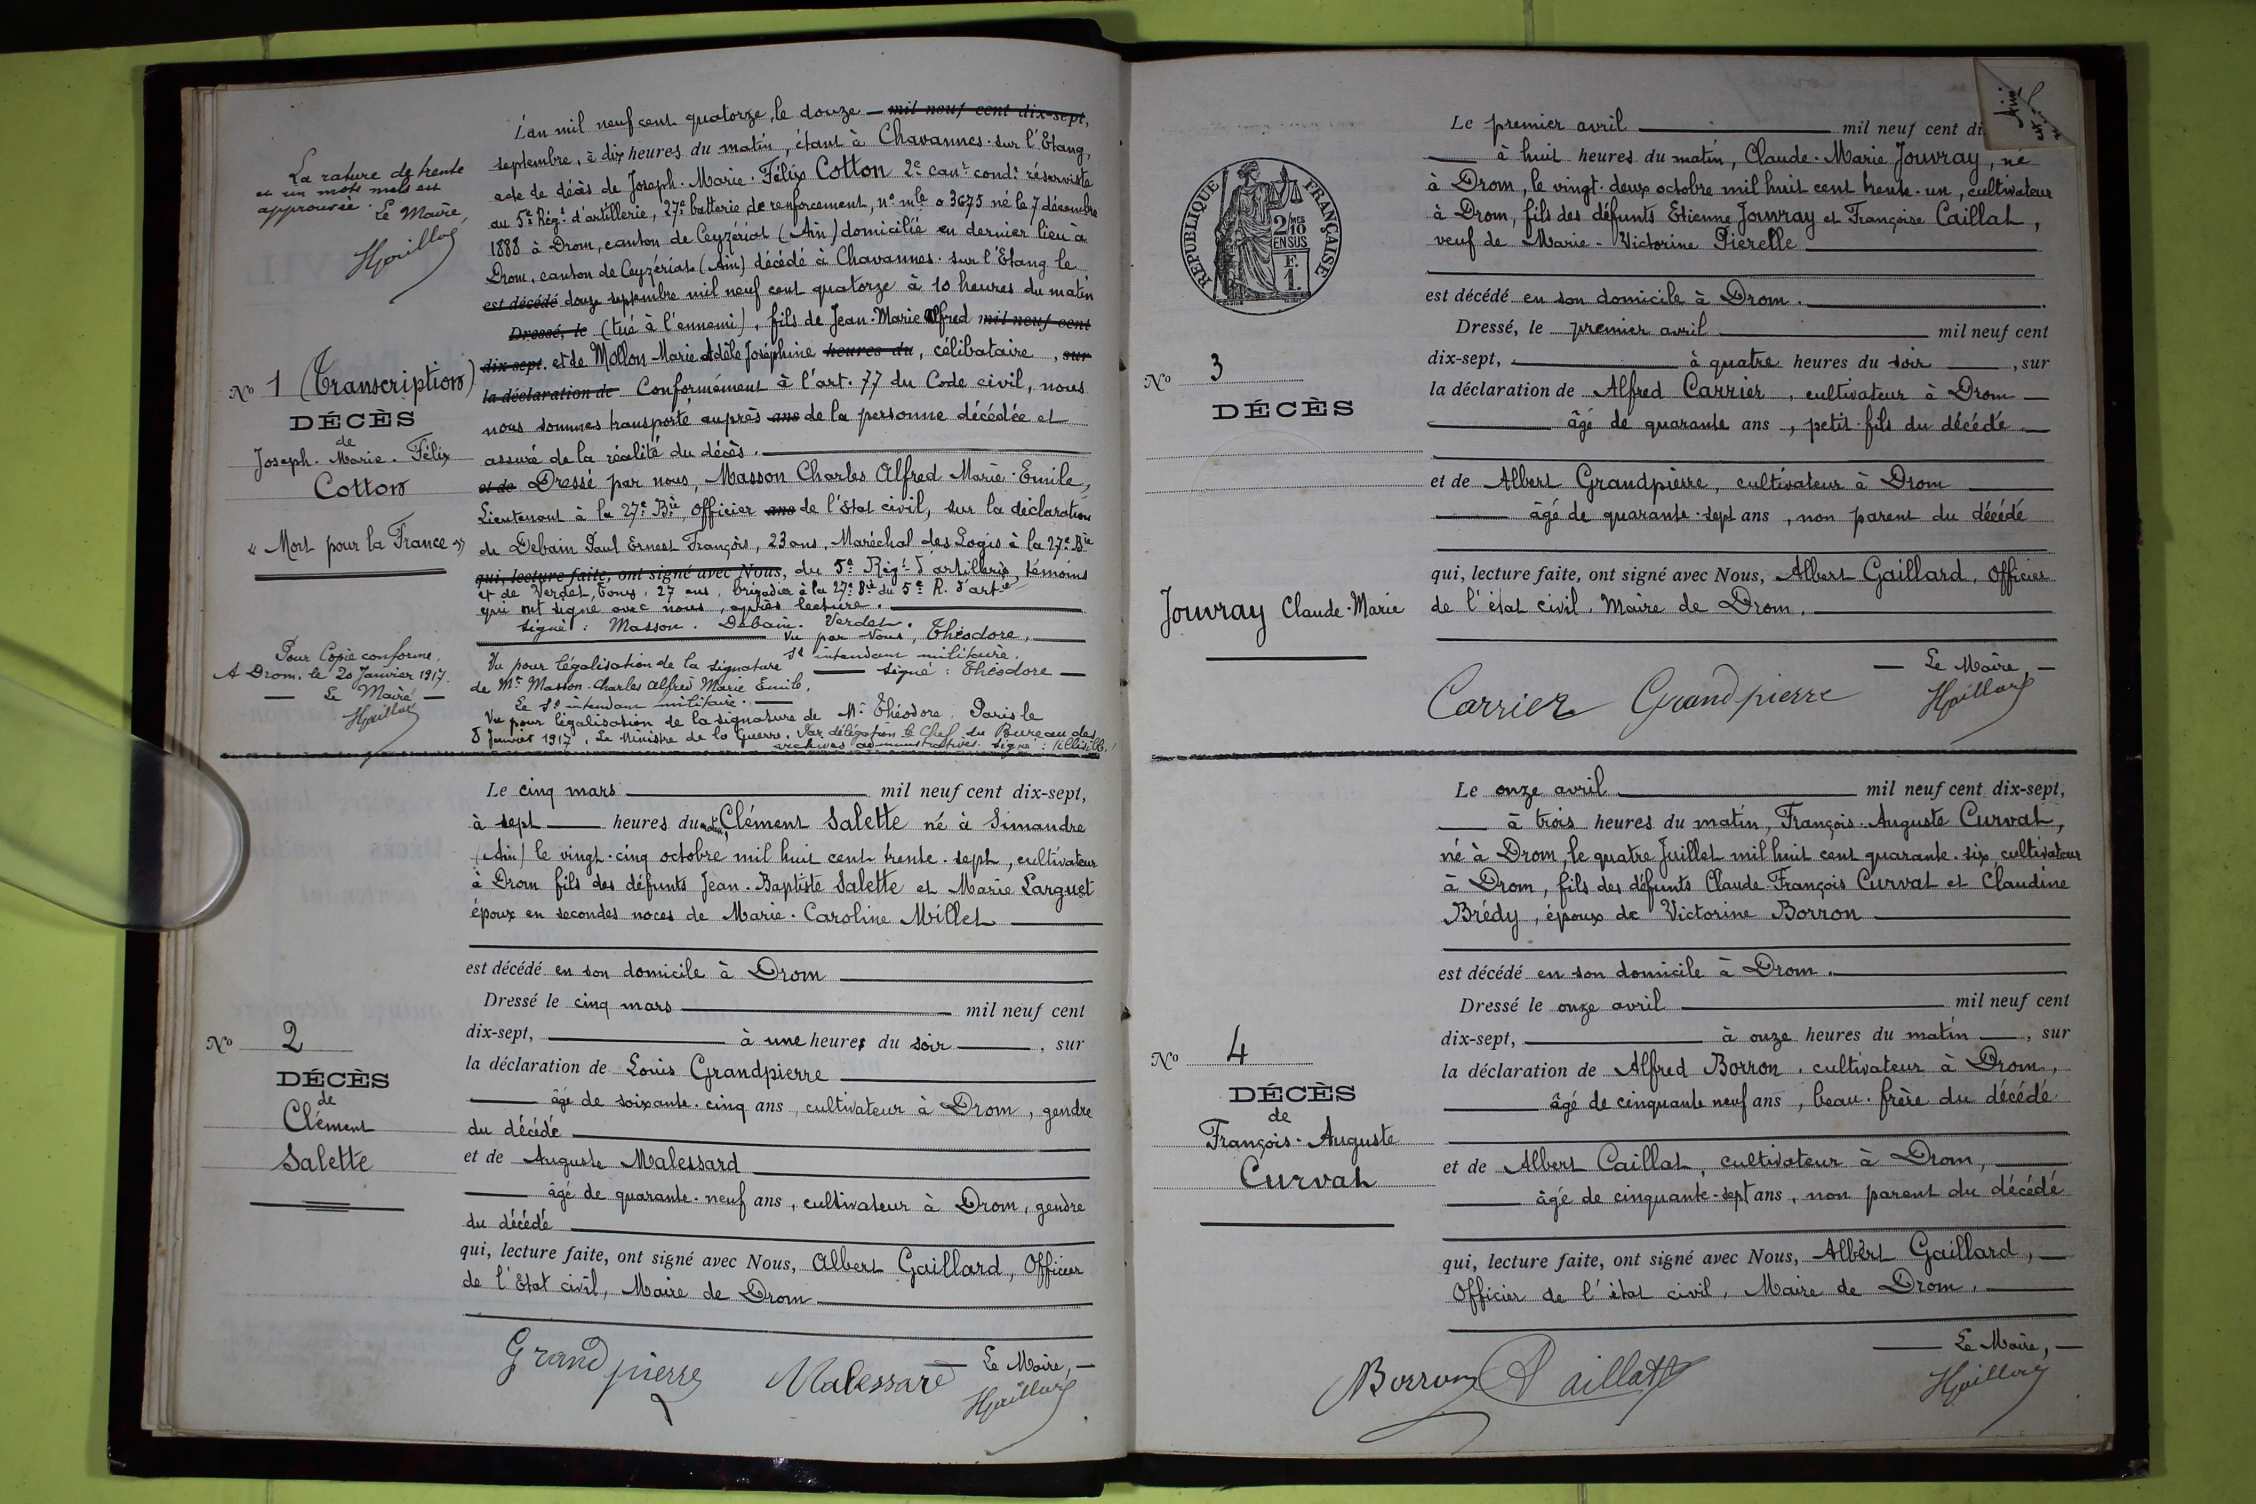 La rature de trente
et un mots nuls est
approuvée. Le Maire,
HGaillard
L'an mil neuf cent quatorze, le douze — mil neuf cent dix-sept,
septembre, à dix heures du matin, étant à Chavannes-sur l'Etang,
acte de décès de Joseph-Marie-Félix Cotton 2e cant condr réserviste
au 5e Régt d'artillerie, 27e batterie de renforcement, no mle 03675 né le 7 décembre
1888 à Drom, canton de Ceyzériat (Ain) domicilié en dernier lieu à
Drom, canton de Ceyzériat (Ain) décédé à Chavannes-sur l'Etang le
est décédé douze septembre mil neuf cent quatorze à 10 heures du matin
Dressé, le (tué à l'ennemi), fils de Jean-Marie Alfred mil neuf cent
dix-sept. et de Mollon Marie Adèle Joséphine heures du, célibataire, sur
la déclaration de Conformément à l'art. 77 du Code civil, nous
nous sommes transporté auprès ans de la personne décédée et
assuré de la réalité du décès.
et de Dressé par nous, Masson Charles Alfred Marie-Emile,
Lieutenant à la 27e Bie, officier ans de l'état civil, sur la déclaration
de Debain Paul Ernest François, 23 ans, Maréchal des Logis à la 27e Bie
qui, lecture faite, ont signé avec Nous, du 5e Régt d'artillerie, témoins
et de Verdet, Tony, 27 ans, brigadier à la 27e Bie du 5e R. d'artie
qui ont signé avec nous, après lecture.
signé: Masson. Debain. Verdet.
Vu par Nous, Théodore,
Vu pour légalisation de la signature St intendant militaire.
de Mr Masson-Charles Alfred Marie Emile, signé: Théodore
Le St intendant militaire.
Vu pour légalisation de la signature de Mr Théodore. Paris le
8 Janvier 1917, Le Ministre de la Guerre. Par délégation le Chef du Bureau des
archives administratives. signé: illisible.
No 1 (Transcription)
DÉCÈS
de
Joseph-Marie-Félix
Cotton
« Mort pour la France »
Pour Copie conforme,
A Drom, le 20 Janvier 1917.
Le Maire
HGaillard
Le cinq mars mil neuf cent dix-sept,
à sept heures du matin, Clément Salette né à Simandre
(Ain) le vingt-cinq octobre mil huit cent trente-sept, cultivateur
à Drom fils des défunts Jean-Baptiste Salette et Marie Larguet
époux en secondes noces de Marie-Caroline Millet
est décédé en son domicile à Drom
Dressé le cinq mars mil neuf cent
dix-sept, à une heures du soir, sur
la déclaration de Louis Grandpierre
âgé de soixante-cinq ans, cultivateur à Drom, gendre
du décédé
et de Auguste Malessard
âgé de quarante-neuf ans, cultivateur à Drom, gendre
du décédé
qui, lecture faite, ont signé avec Nous, Albert Gaillard, Officier
de l'Etat civil, Maire de Drom
Grandpierre Malessard Le Maire,
HGaillard
No 2
DÉCÈS
de
Clément
Salette
RÉPUBLIQUE FRANÇAISE
2/10MES
EN SUS
F.
1.
Le premier avril mil neuf cent di
à huit heures du matin, Claude-Marie Jouvray, né
à Drom, le vingt-deux octobre mil huit cent trente-un, cultivateur
à Drom, fils des défunts Etienne Jouvray et Françoise Caillat,
veuf de Marie-Victorine Pierelle
est décédé en son domicile à Drom.
Dressé, le premier avril mil neuf cent
dix-sept, à quatre heures du soir, sur
la déclaration de Alfred Carrier, cultivateur à Drom
âgé de quarante ans, petit-fils du décédé
et de Albert Grandpierre, cultivateur à Drom
âgé de quarante-sept ans, non parent du décédé
qui, lecture faite, ont signé avec Nous, Albert Gaillard, Officier
de l'état civil, Maire de Drom.
Le Maire,
Carrier Grandpierre HGaillard
No 3
DÉCÈS
Jouvray Claude-Marie
Le onze avril mil neuf cent dix-sept,
à trois heures du matin, François-Auguste Curvat,
né à Drom, le quatre Juillet mil huit cent quarante-six, cultivateur
à Drom, fils des défunts Claude-François Curvat et Claudine
Brédy, époux de Victorine Borron
est décédé en son domicile à Drom.
Dressé le onze avril mil neuf cent
dix-sept, à onze heures du matin, sur
la déclaration de Alfred Borron, cultivateur à Drom,
âgé de cinquante neuf ans, beau-frère du décédé
et de Albert Caillat, cultivateur à Drom,
âgé de cinquante-sept ans, non parent du décédé
qui, lecture faite, ont signé avec Nous, Albert Gaillard,
Officier de l'état civil, Maire de Drom.
Le Maire,
Borron Caillat HGaillard
No 4
DÉCÈS
de
François-Auguste
Curvat